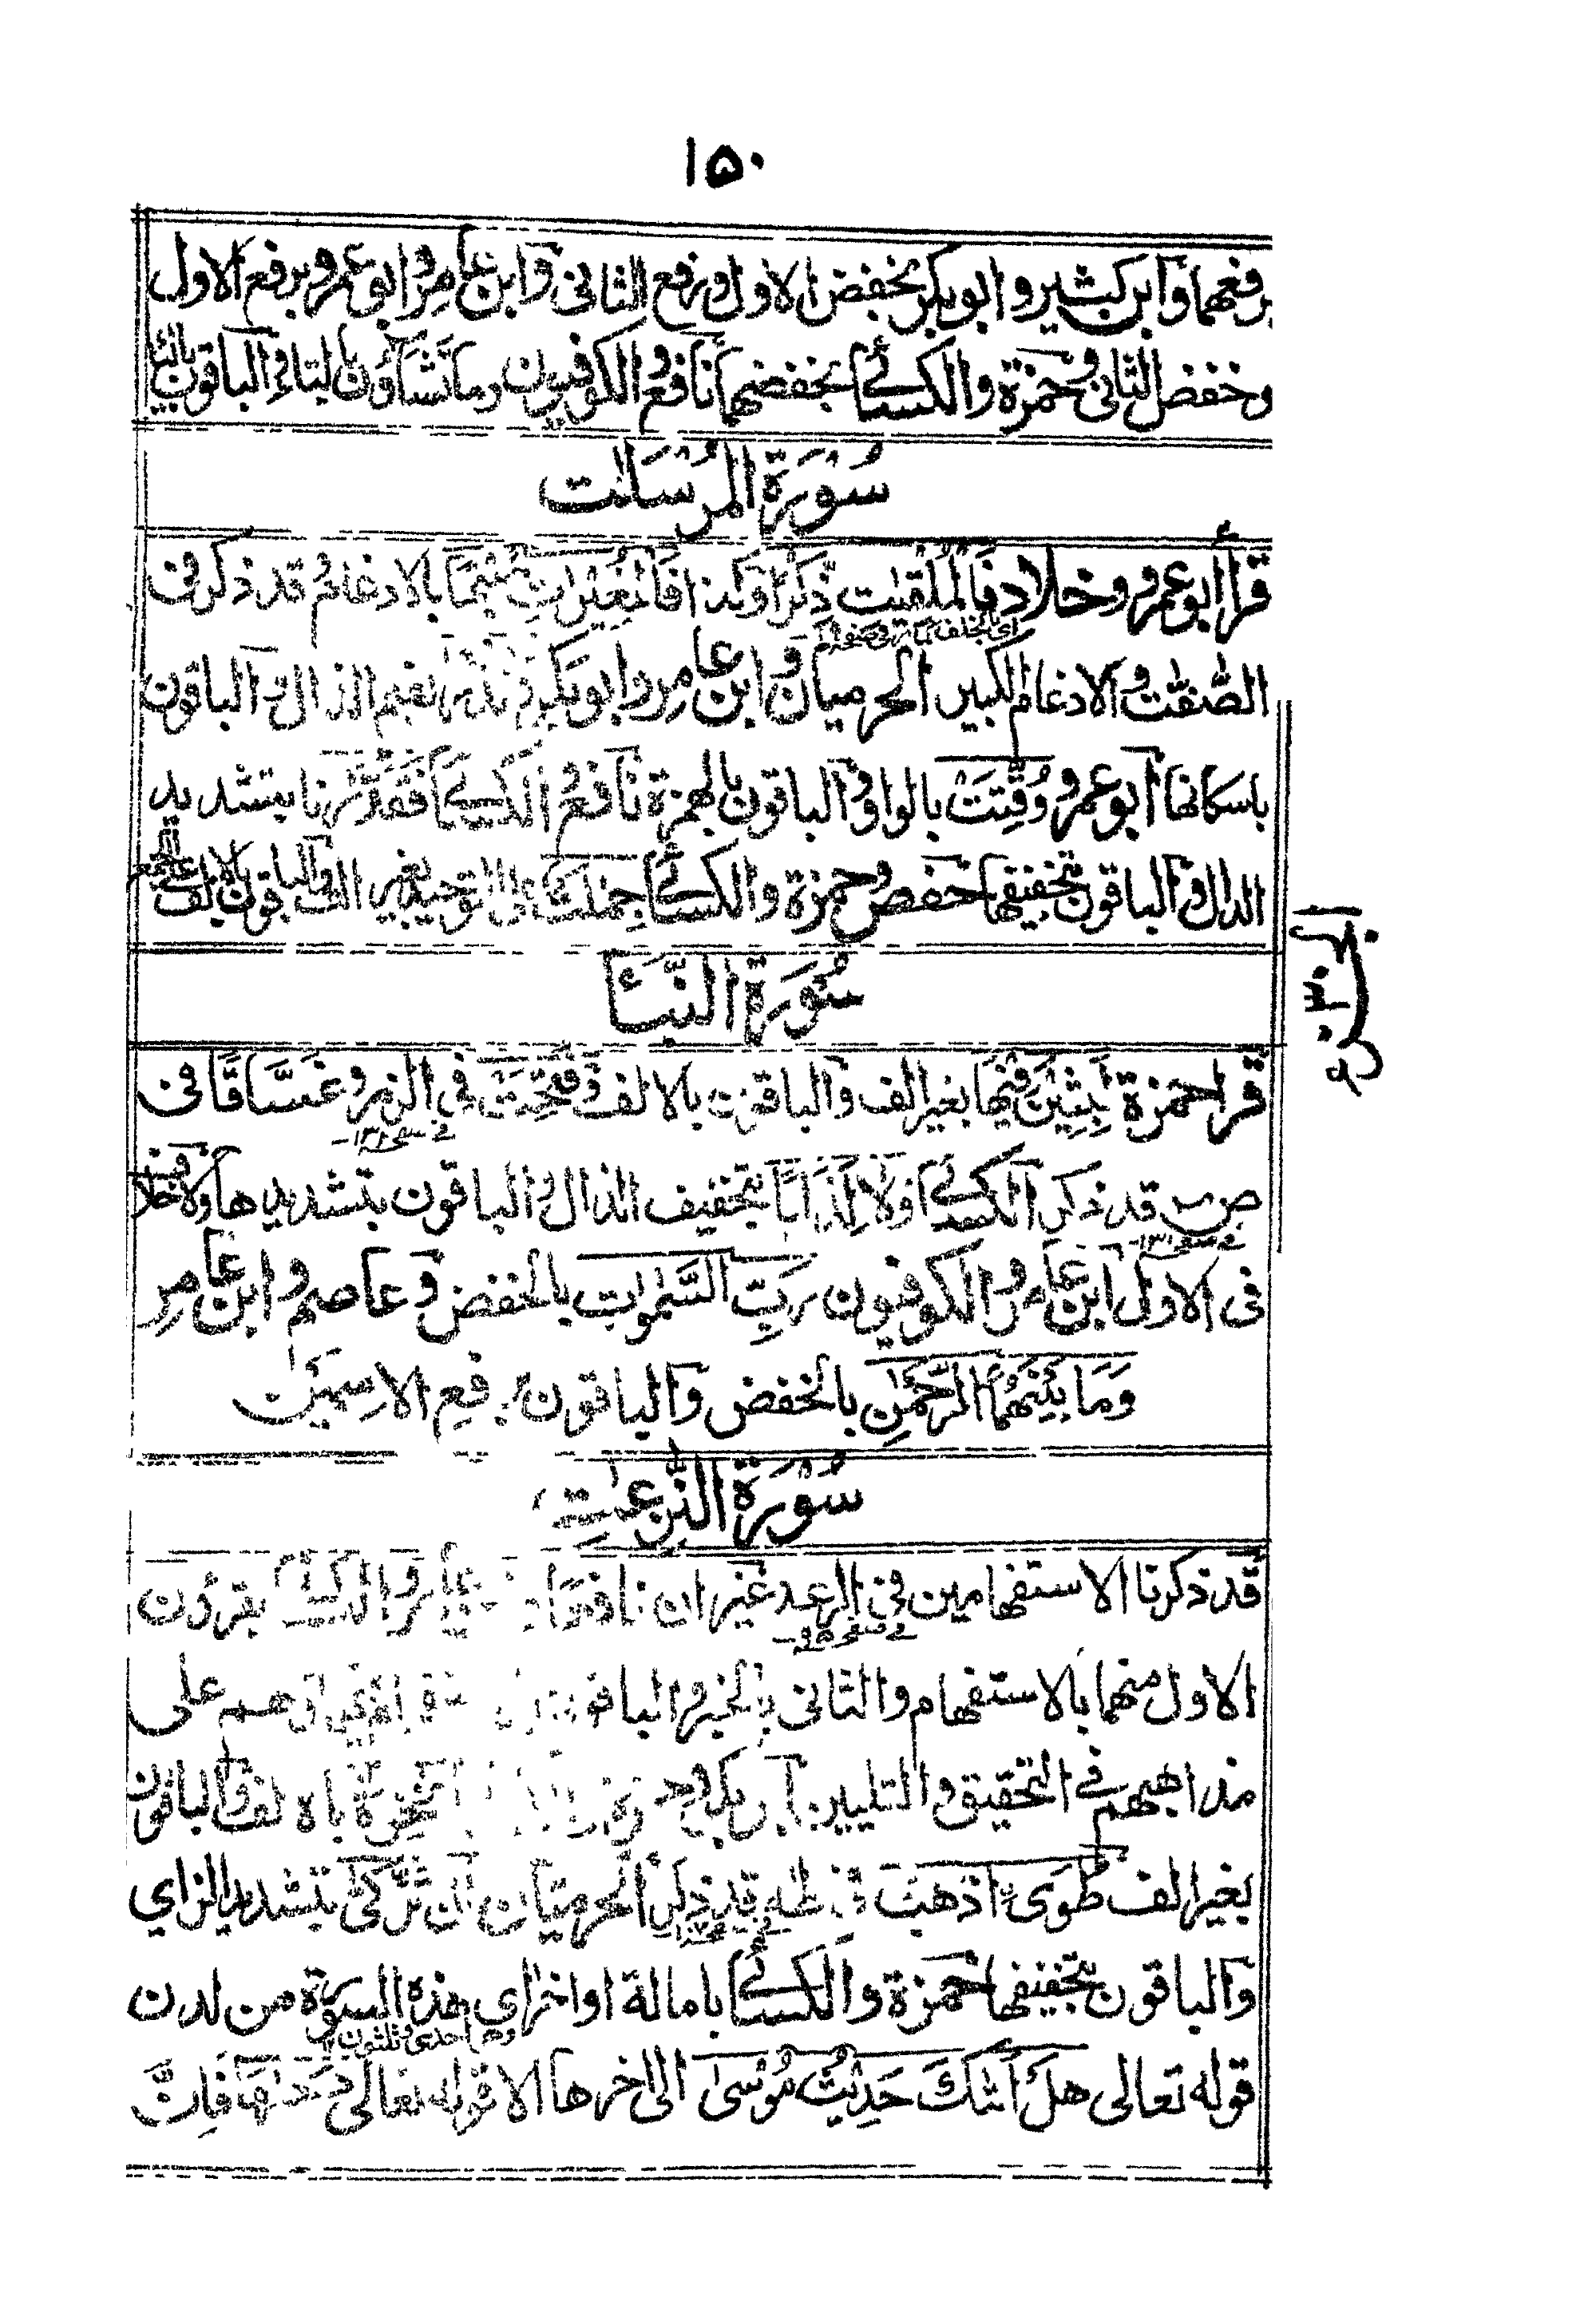 ١٥٠
برفعهما وابن كثير وابو بكر بخفض الاول ورفع الثانى وابن عامر وابو عمرو برفع الاول
وخفض الثانى وحمزة والكسائى بخفضهما نافع والكوفيون وما تشاؤن بالتاء والباقون بالياء
سُورَة المُرسَلٰت
قرأ ابو عمرو وخلاد فَالْمُلْقِيٰت ذِكْرًا وكذا فَالْمُغِيْرٰتِ صُبْحًا بالادغام قد ذكر فى
الصّٰفّٰت والادغام الكبير الحرميان وابن عامر وابو بكر نُذُرًا بضم الذال والباقون
باسكانها ابو عمرو وُقِّتَتْ بالواو والباقون بالهمزة نافع والكسائى فَقَدَّرْنا بتشديد
الدال والباقون بتخفيفها حفص وحمزة والكسائى جِمٰلَتٌ على التوحيد بغير الف والباقون بالالف على الجمع
سُورَة النَّبَأ
قرا حمزة لَبِثِيْنَ فِيْهَا بغير الف والباقون بالالف وفُتِحَتْ فى الزمر وغَسَّاقًا فى
فى صفحه ١٣١
ص قد ذكر الكسائى وَلَا كِذَابًا بتخفيف الذال والباقون بتشديدها ولا خلاف
فى صفحه ١٣١
فى الاول ابن عامر والكوفيون رَبِّ السَّمٰوٰتِ بالخفض وعاصم وابن عامر
وَمَا بَيْنَهُمَا الرَّحْمٰنِ بالخفض والباقون برفع الاسمين
سُورَة النّٰزِعٰتِ
قد ذكرنا الاستفهامين فى الرعد غير ان نافعًا وابن عامر والكسائى يقرؤن
الاول منهما بالاستفهام والثانى بالخبر والباقون هم على
مذاهبهم فى التحقيق والتليين ابو بكر وحمزة نٰخِرَة بالالف والباقون
بغير الف طُوَى اذهب فى طه قد ذكر الحرميان الى ان تَزَّكّٰى بتشديد الزاي
والباقون بتخفيفها حمزة والكسائى بامالة اواخر اى هذه السورة من لدن
وهى احدى وثلثون
قوله تعالى هَلْ اَتٰىكَ حَدِيْثُ مُوْسٰى الى اخرها الا قوله تعالى دَحٰىهَا فان